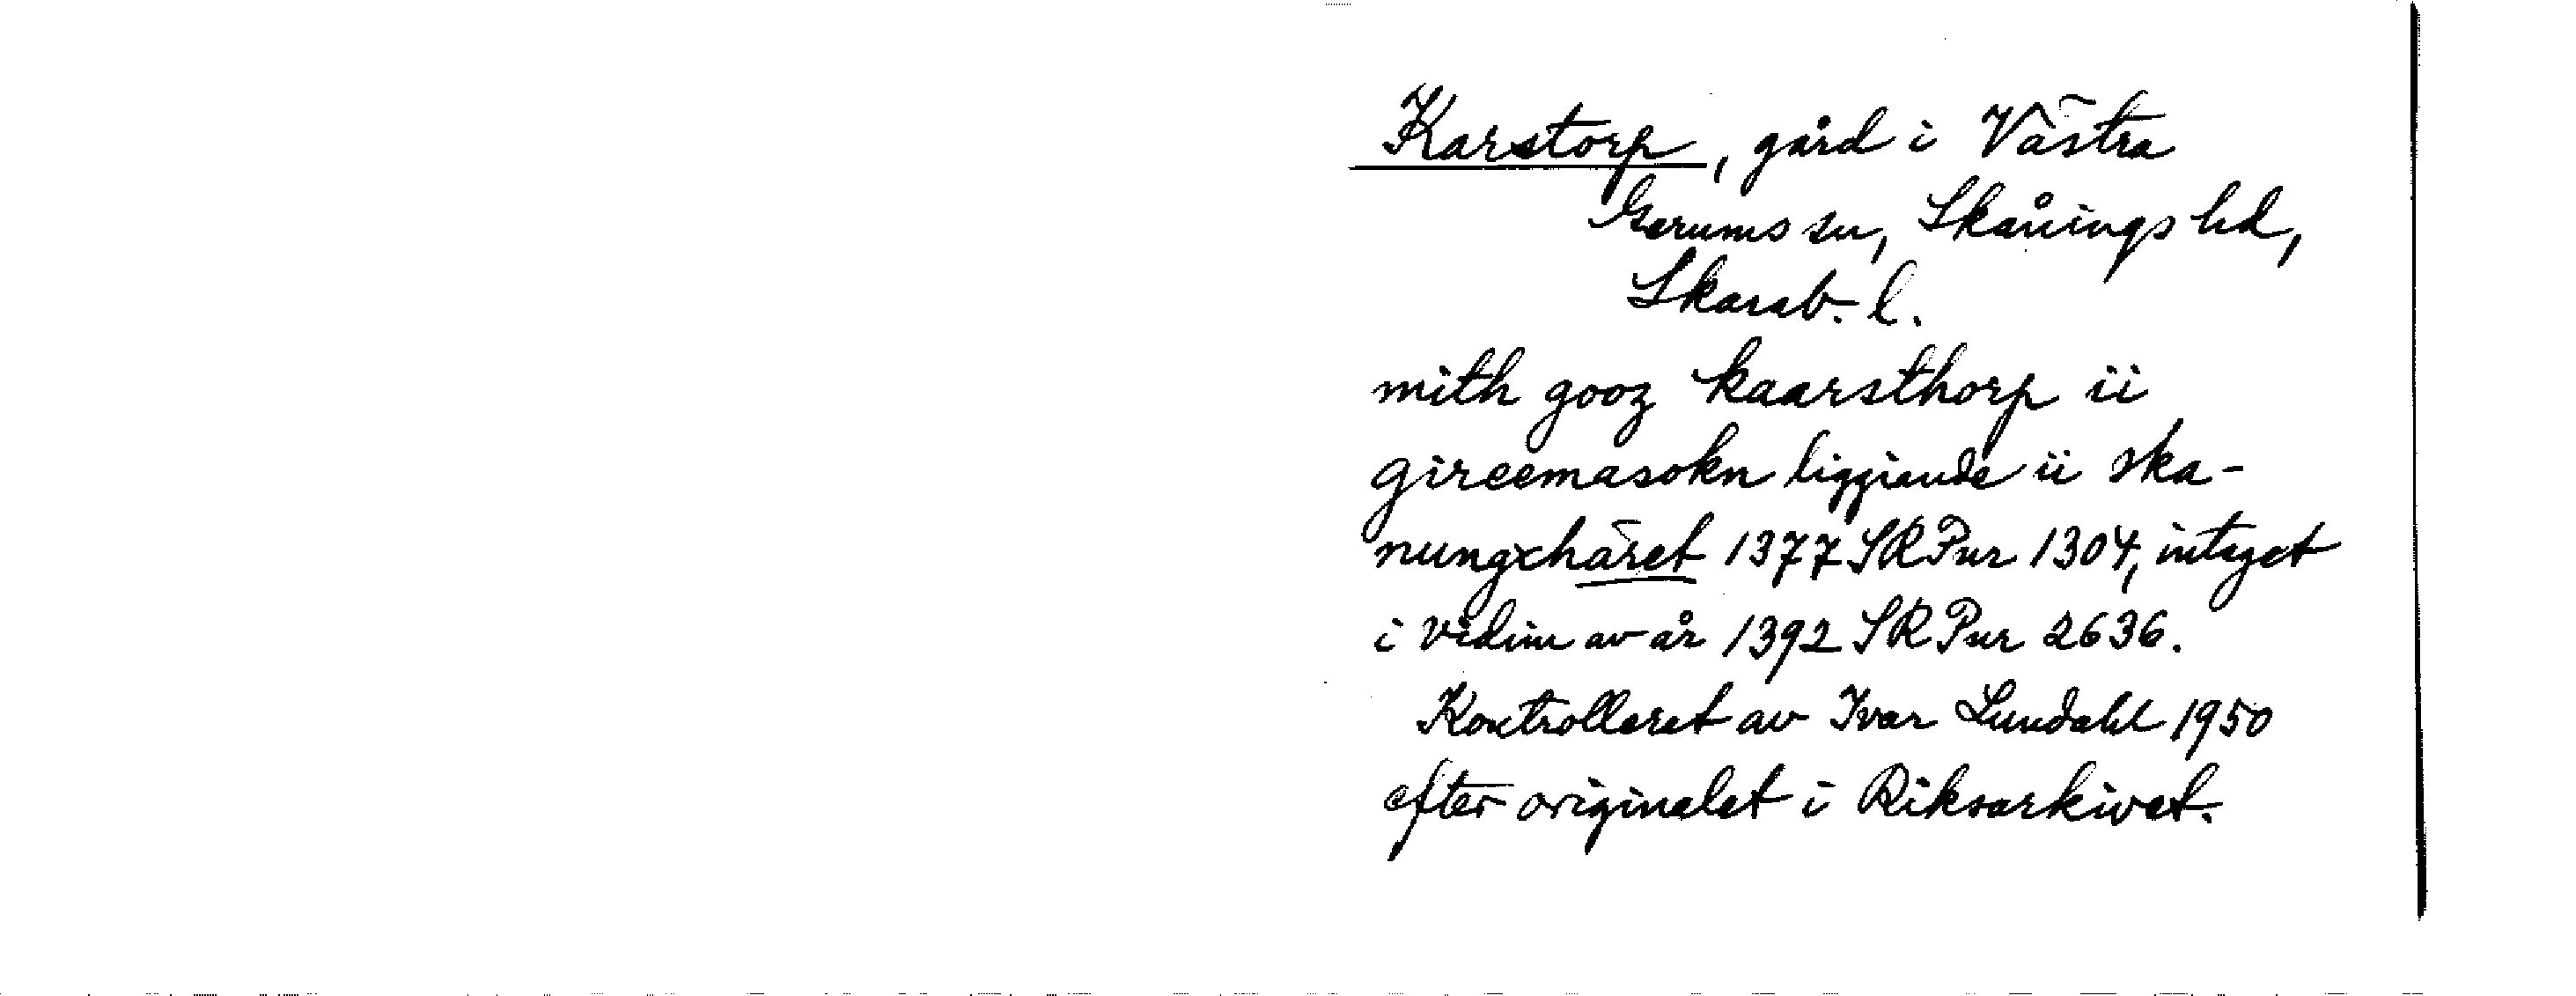 Karstorp, gård i Västra
Gerums sn, Skånings hd,
Skarab. l.
mith gooz kaarsthorp ii
gireemasokn liggiande ii ska-
nungxhäret 1377 SRPur 1304, intaget
i vidim av år 1392 SRPur 2636.
Kontrolleret av Ivar Lundahl 1950
efter originalet i Riksarkivet.